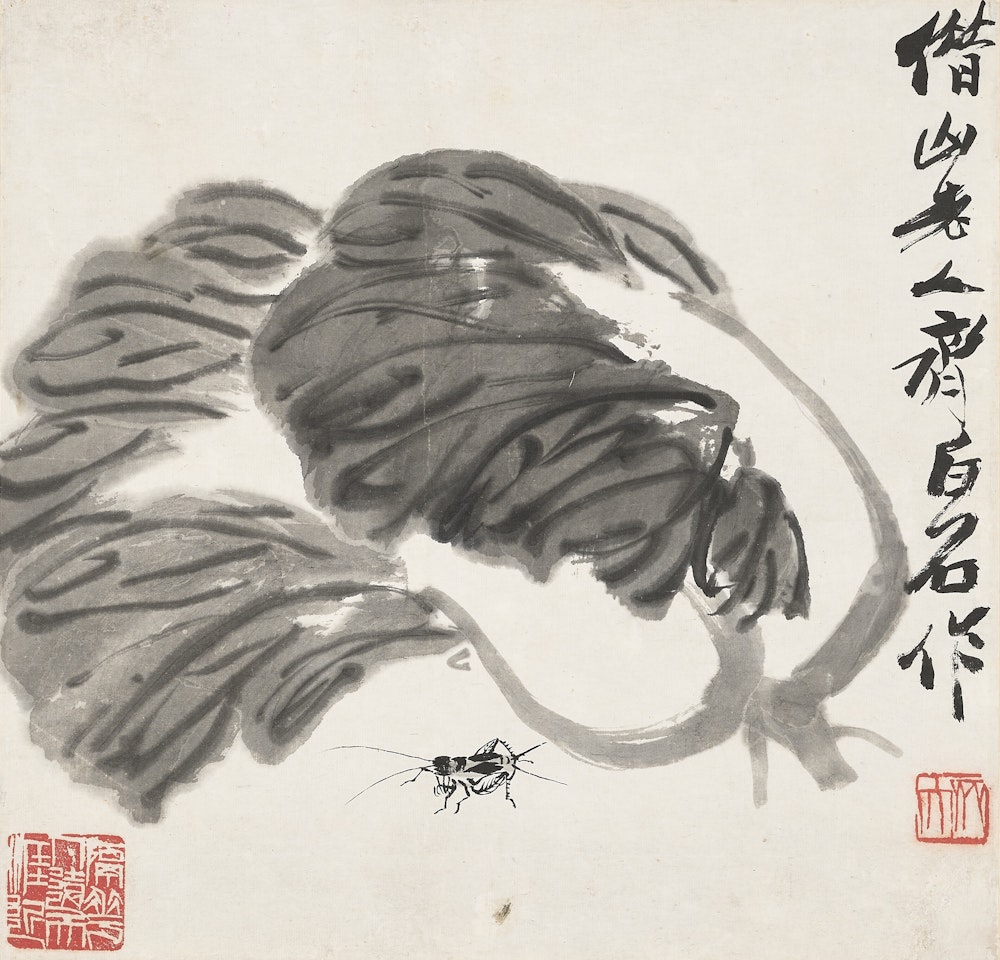 借山老人齊白石作